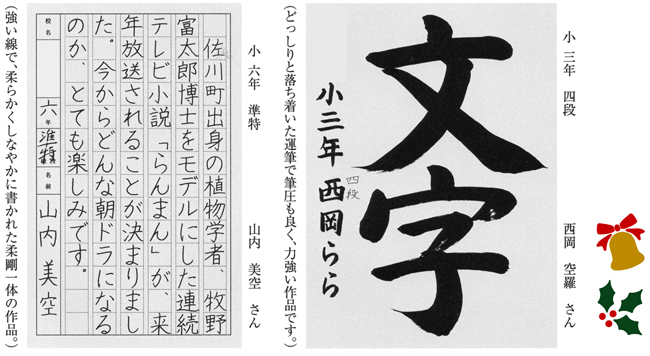 小 三年　四段　西岡　空羅　さん
文字
四段
小三年 西岡らら
（どっしりと落ち着いた運筆で筆圧も良く、力強い作品です。）
小 六年　準特　山内　美空　さん
佐川町出身の植物学者、牧野
富太郎博士をモデルにした連続
テレビ小説「らんまん」が、来
年放送されることが決まりまし
た。今からどんな朝ドラになる
のか、とても楽しみです。
校名　六年　準特　名前　山内 美空
（強い線で、柔らかくしなやかに書かれた柔剛一体の作品。）